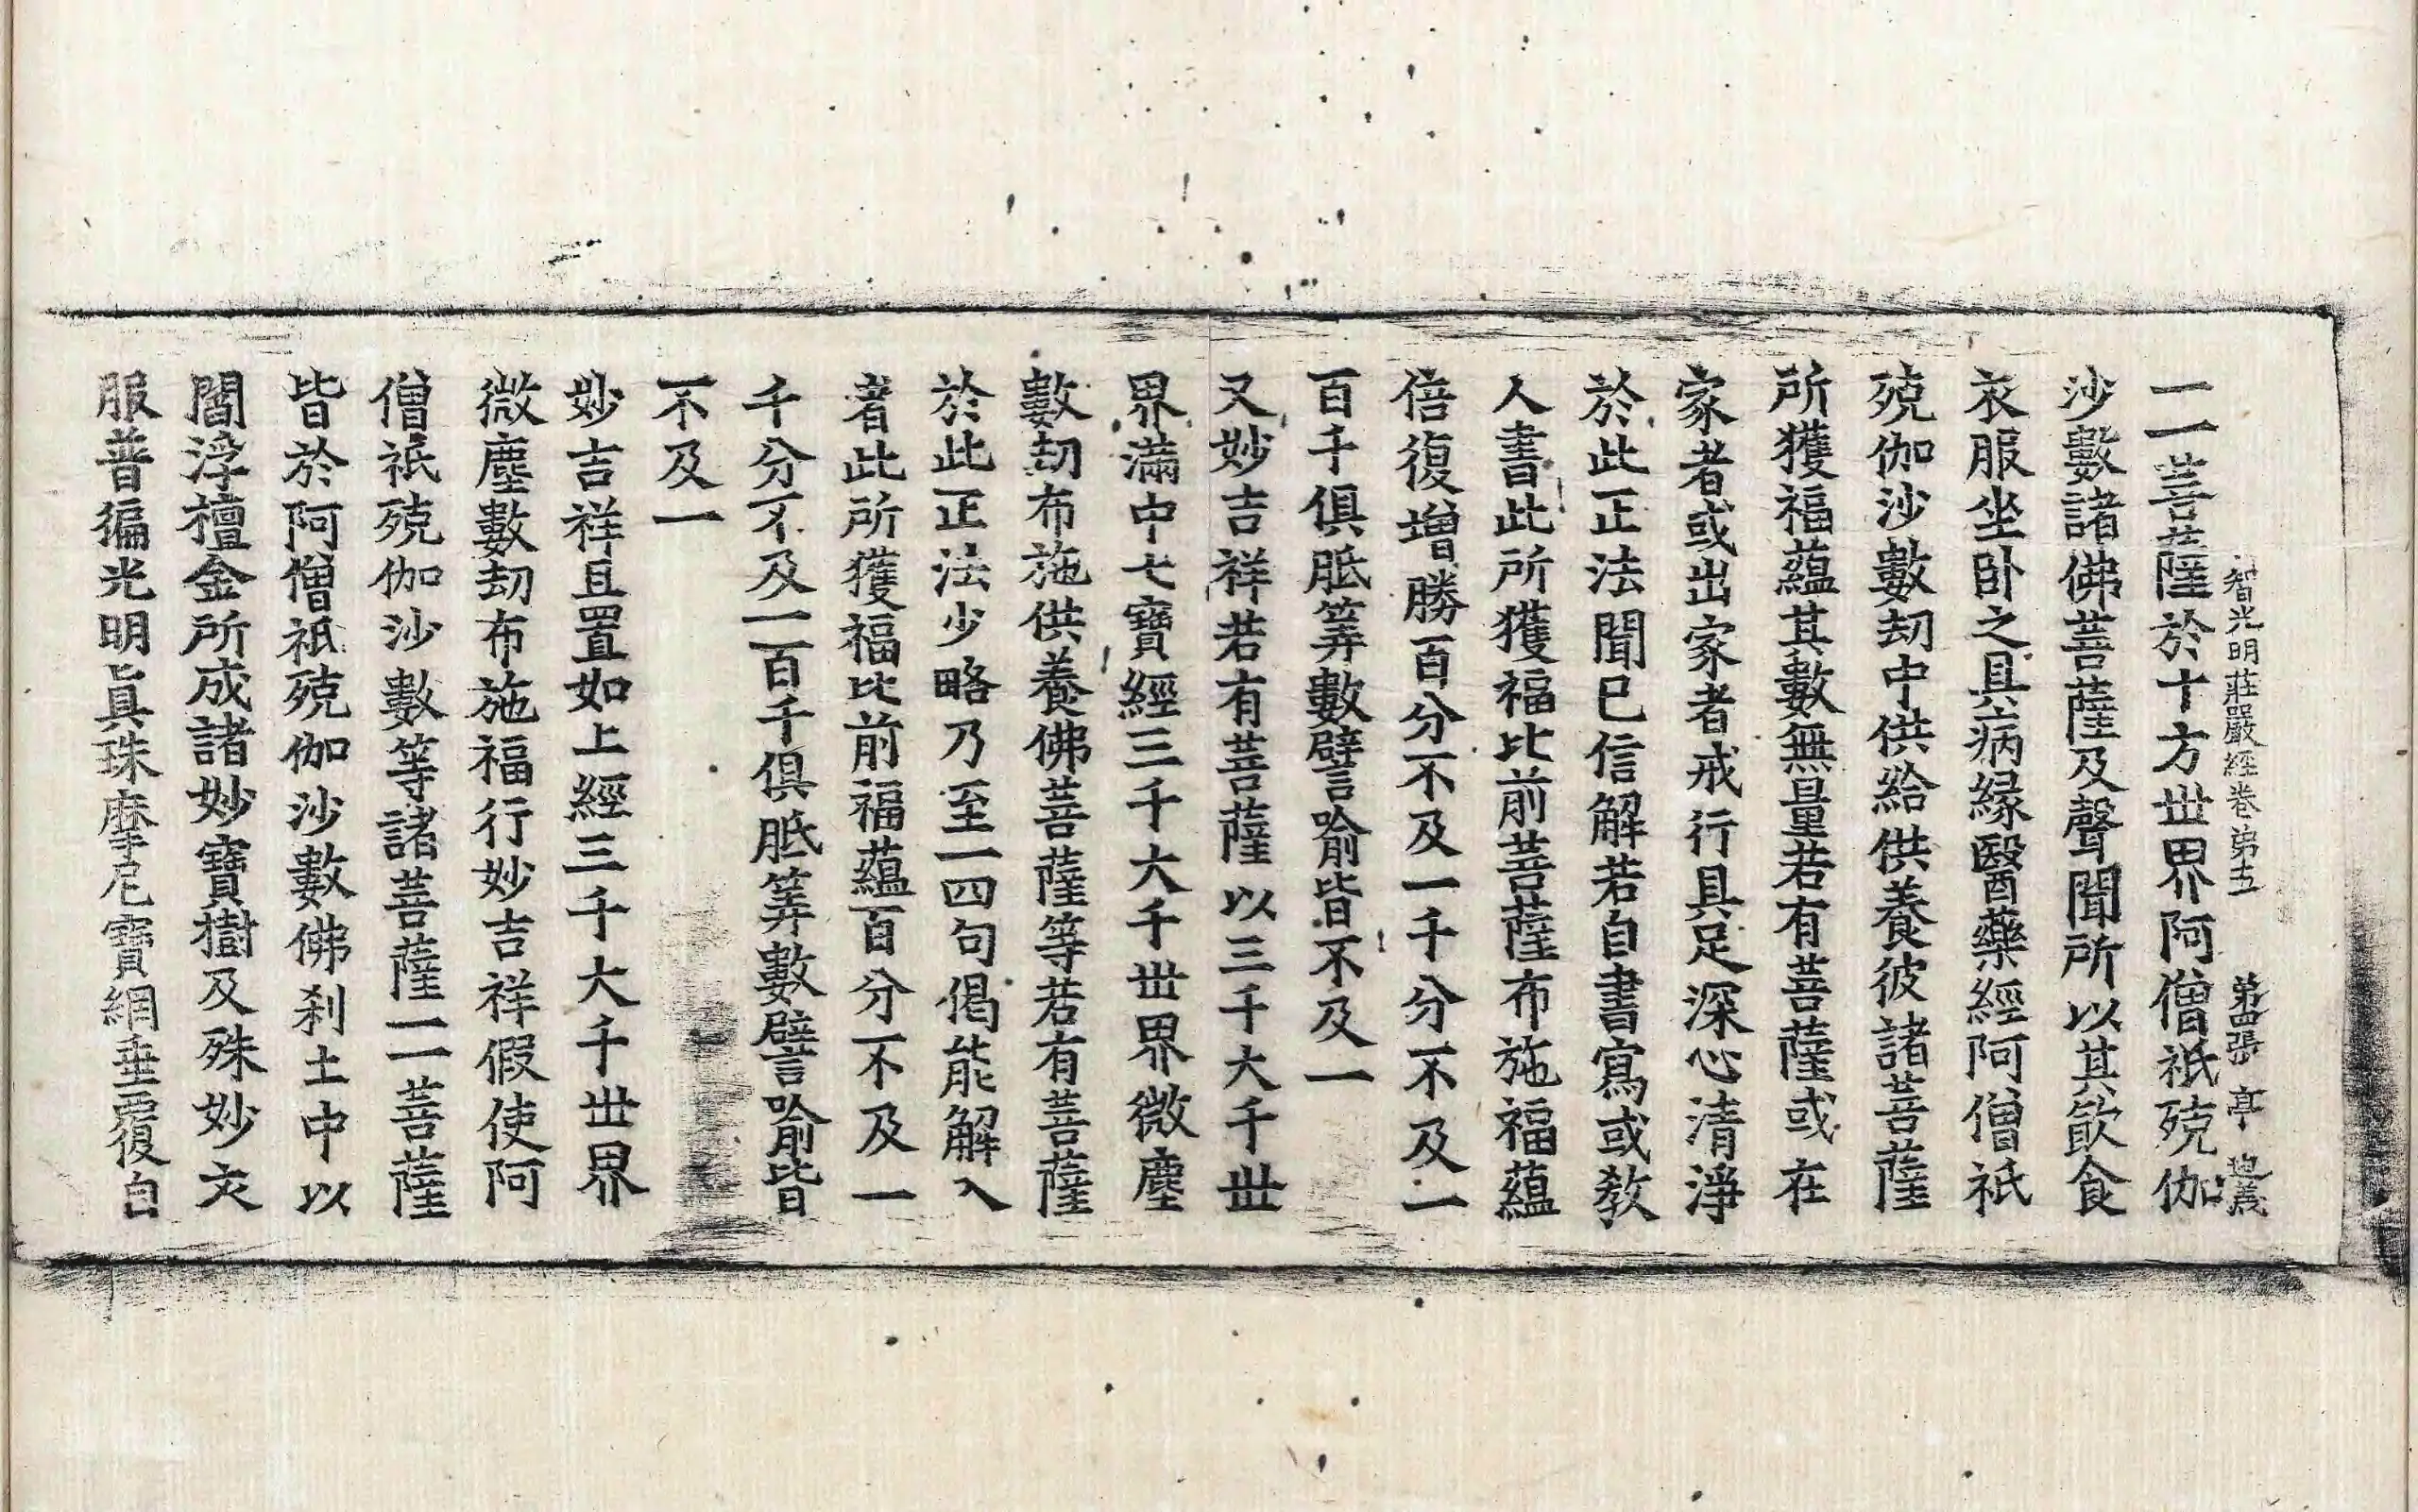 智光明莊嚴經卷第五 第四張 亭
一一菩薩於十方丗界阿僧祇殑伽
沙數諸佛菩薩及聲聞所以其飮食
衣服坐卧之具病緣醫藥經阿僧祇
殑伽沙數劫中供給供養彼諸菩薩
所獲福蘊其數無量若有菩薩或在
家者或出家者戒行具足深心清淨
於此正法聞已信解若自書寫或教
人書此所獲福比前菩薩布施福蘊
倍復增勝百分不及一千分不及一
百千俱胝筭數譬喻皆不及一
又妙吉祥若有菩薩以三千大千丗
界滿中七寶經三千大千丗界微塵
數劫布施供養佛菩薩等若有菩薩
於此正法少略乃至一四句偈能解入
者此所獲福比前福蘊百分不及一
千分不及一百千俱胝筭數譬喻皆
不及一
妙吉祥且置如上經三千大千丗界
微塵數劫布施福行妙吉祥假使阿
僧祇殑伽沙數等諸菩薩一一菩薩
皆於阿僧祇殑伽沙數佛刹土中以
閻浮檀金所成諸妙寶樹及殊妙衣
服普徧光明真珠摩尼寶網垂覆自